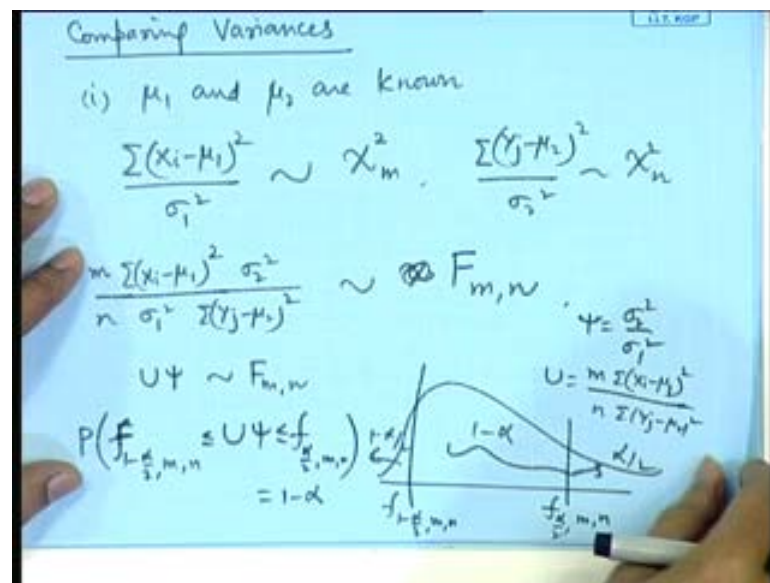 Comparing Variances
(i) μ₁ and μ₂ are known
Σ(Xi-μ₁)² / σ₁² ~ χ²m . Σ(Yj-μ₂)² / σ₂² ~ χ²n
m Σ(Xi-μ₁)² σ₂² / n σ₁² Σ(Yj-μ₂)² ~ F m,n .
ψ = σ₂² / σ₁²
Uψ ~ F m,n
U = m Σ(Xi-μ₁)² / n Σ(Yj-μ₂)²
P(f 1-α/2, m, n ≤ Uψ ≤ f α/2, m, n)
= 1-α
1-α
α/2
f 1-α/2, m, n
f α/2, m, n